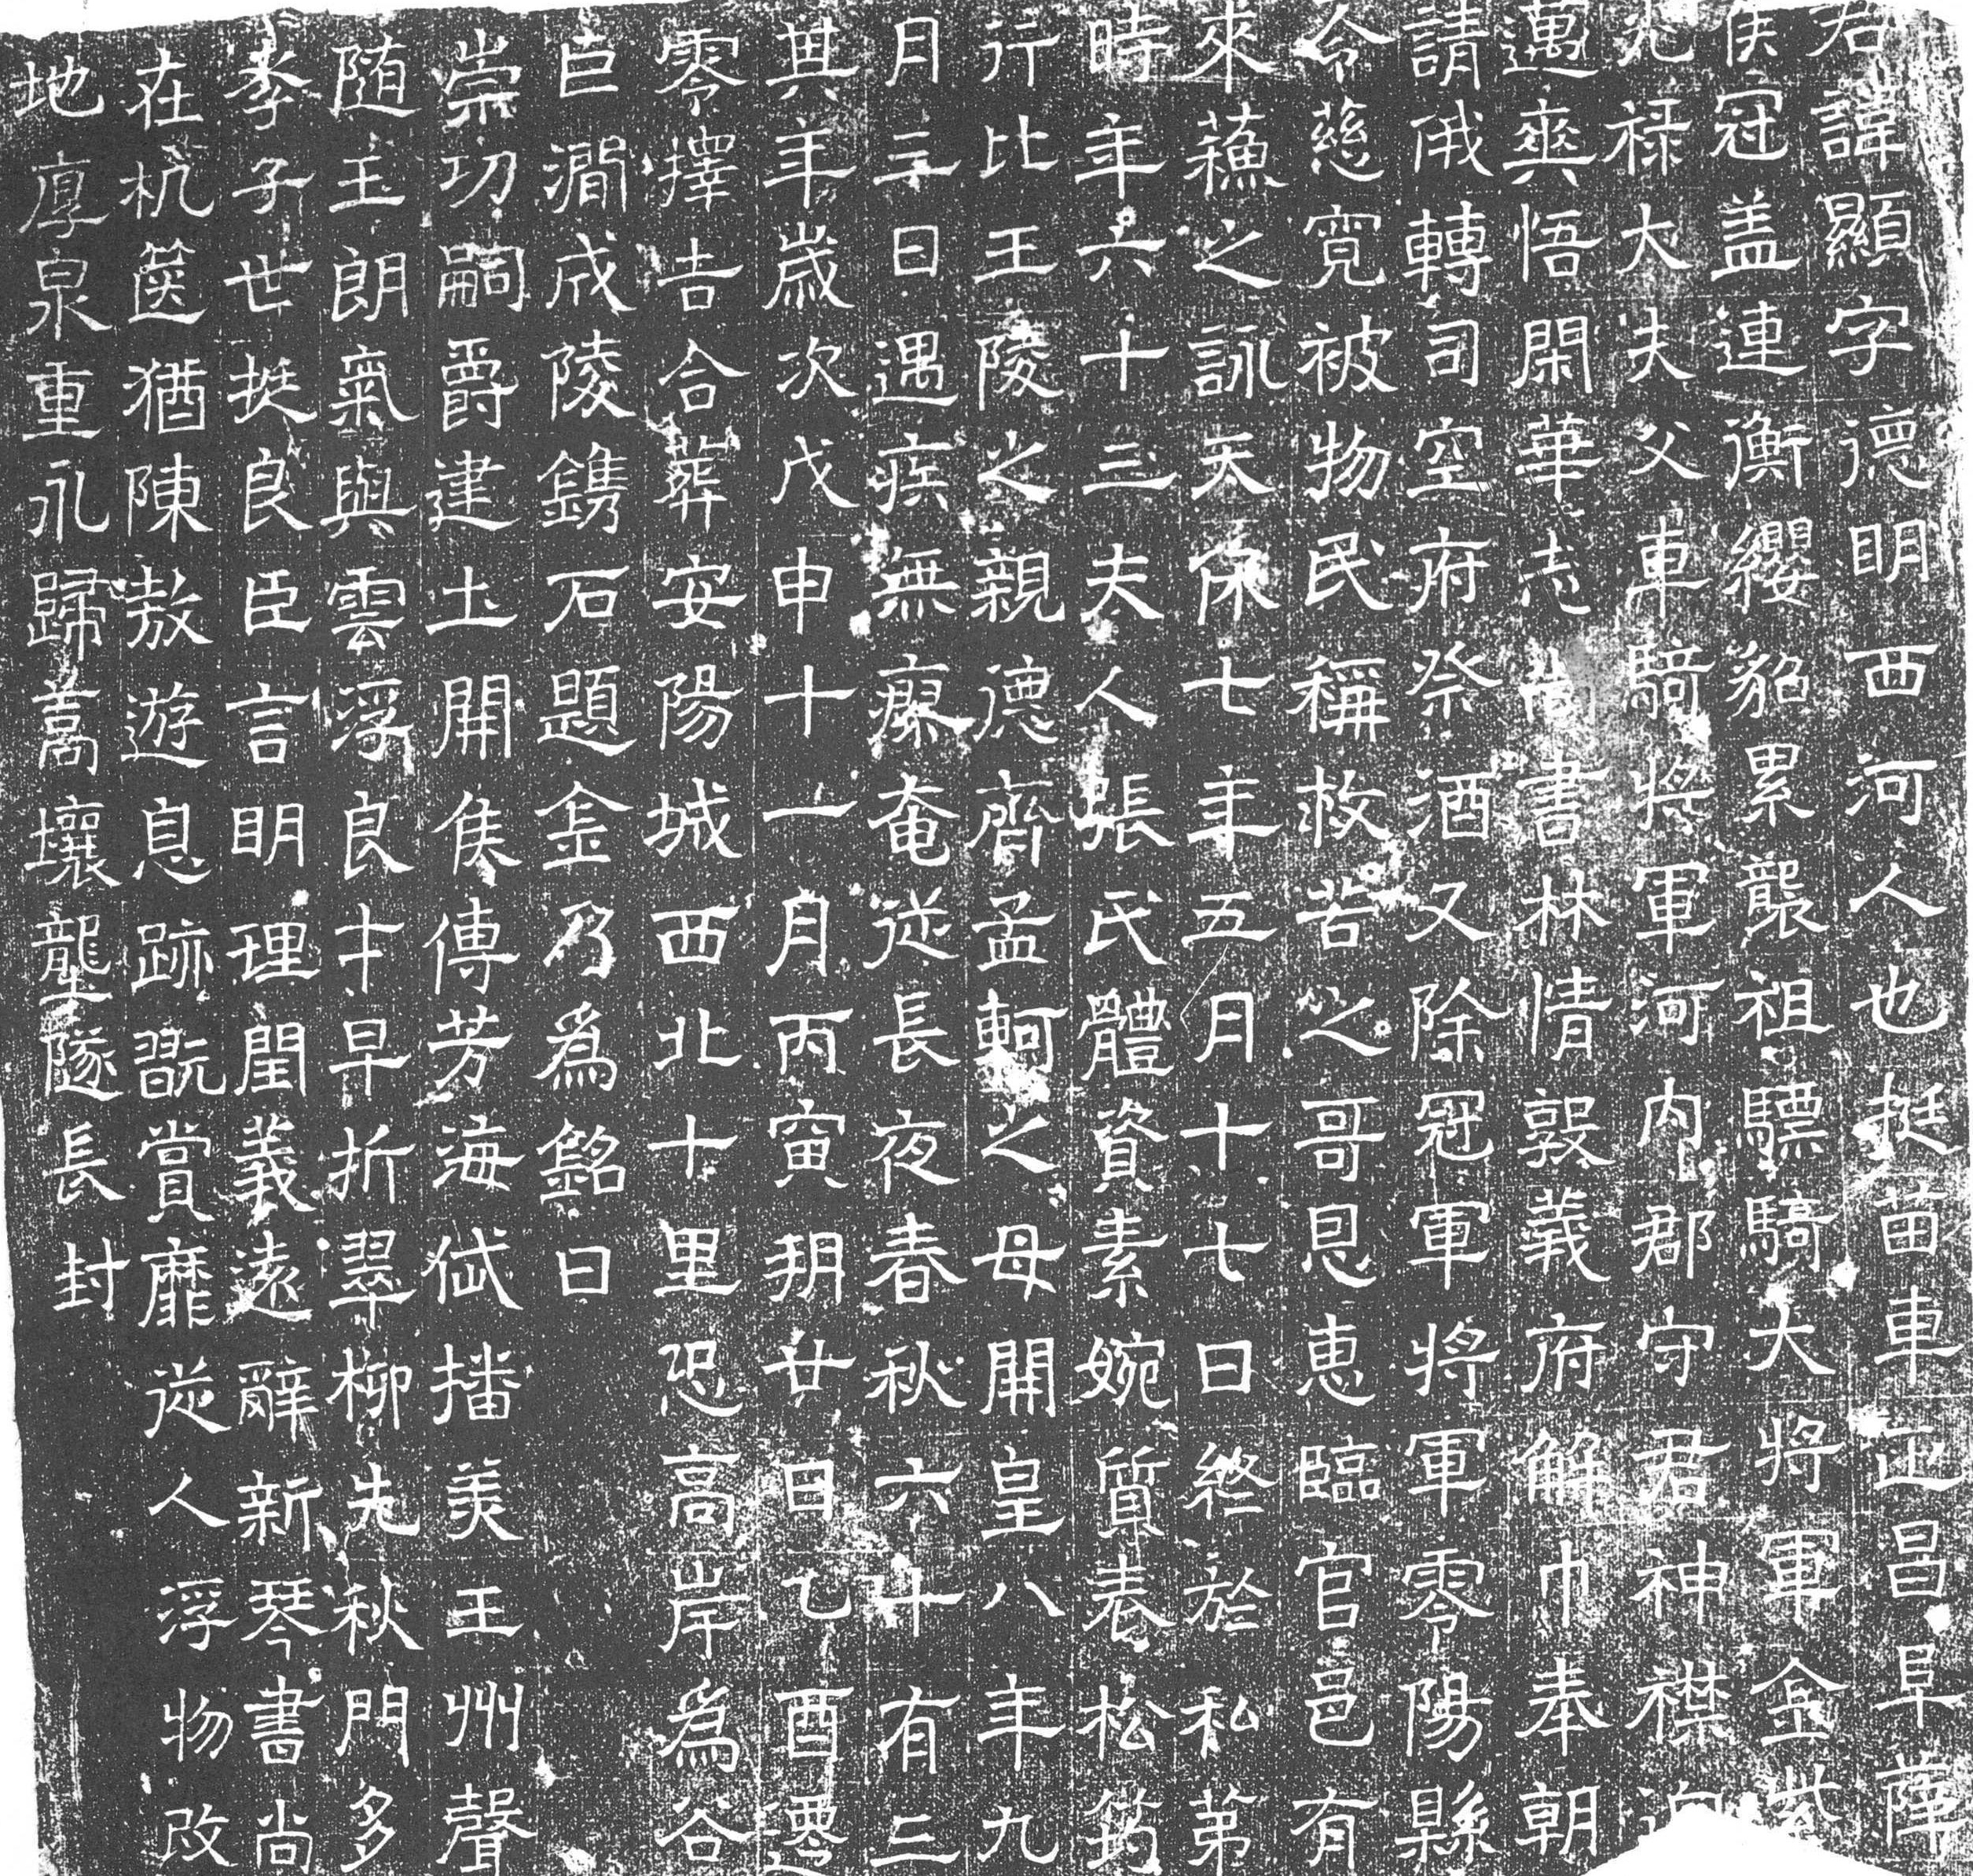 君諱顯字德明西河人也挺苗車正昌阜薛
侯冠盖連衡纓貂累襲祖驃騎大將軍金紫
光祿大夫父車騎將軍河内郡守君神襟
邁爽悟閑華志尚書林情敦義府解巾奉朝
請俄轉司空府祭酒又除冠軍將軍零陽縣
令慈寛被物民稱救苦之哥恩惠臨官邑有
來蘓之詠天保七年五月十七日終於私第
時年六十三夫人張氏體資素婉質表松筠
行比王陵之親德齊孟軻之母開皇八年九
月三日遇疾無瘳奄從長夜春秋六十有三
其年歲次戊申十一月丙寅朔廿日乙酉遷
零擇吉合葬安陽城西北十里恐高岸爲谷
巨澗成陵鐫石題金乃爲銘曰
崇功嗣爵建土開侯傳芳海岱播美王州聲
随玉朗氣與雲浮良才早折翠柳先秋門多
孝子世挺良臣言明理閏義遠辭新琴書尚
在杭篋猶陳敖遊息跡翫賞靡從人浮物改
地厚泉重永歸蒿壤龍隧長封